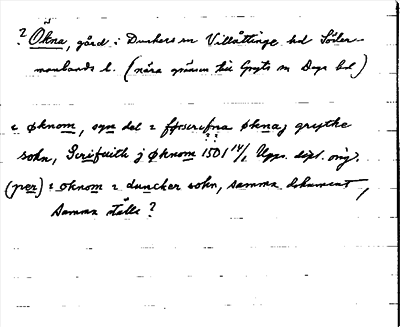 ? Ökna, gård i Dunkers sn Villåttinge hd Söder-
manlands l. (nära gränsen till Gryts sn Daga hd)
i øknom, syn del i øfna økna j grytke
sokn, Scrifuith j øknom 1501 14/1 Upps. dipl. orig.
(per) i oknom i duncker sokn, samma dokument,
samma ställe?